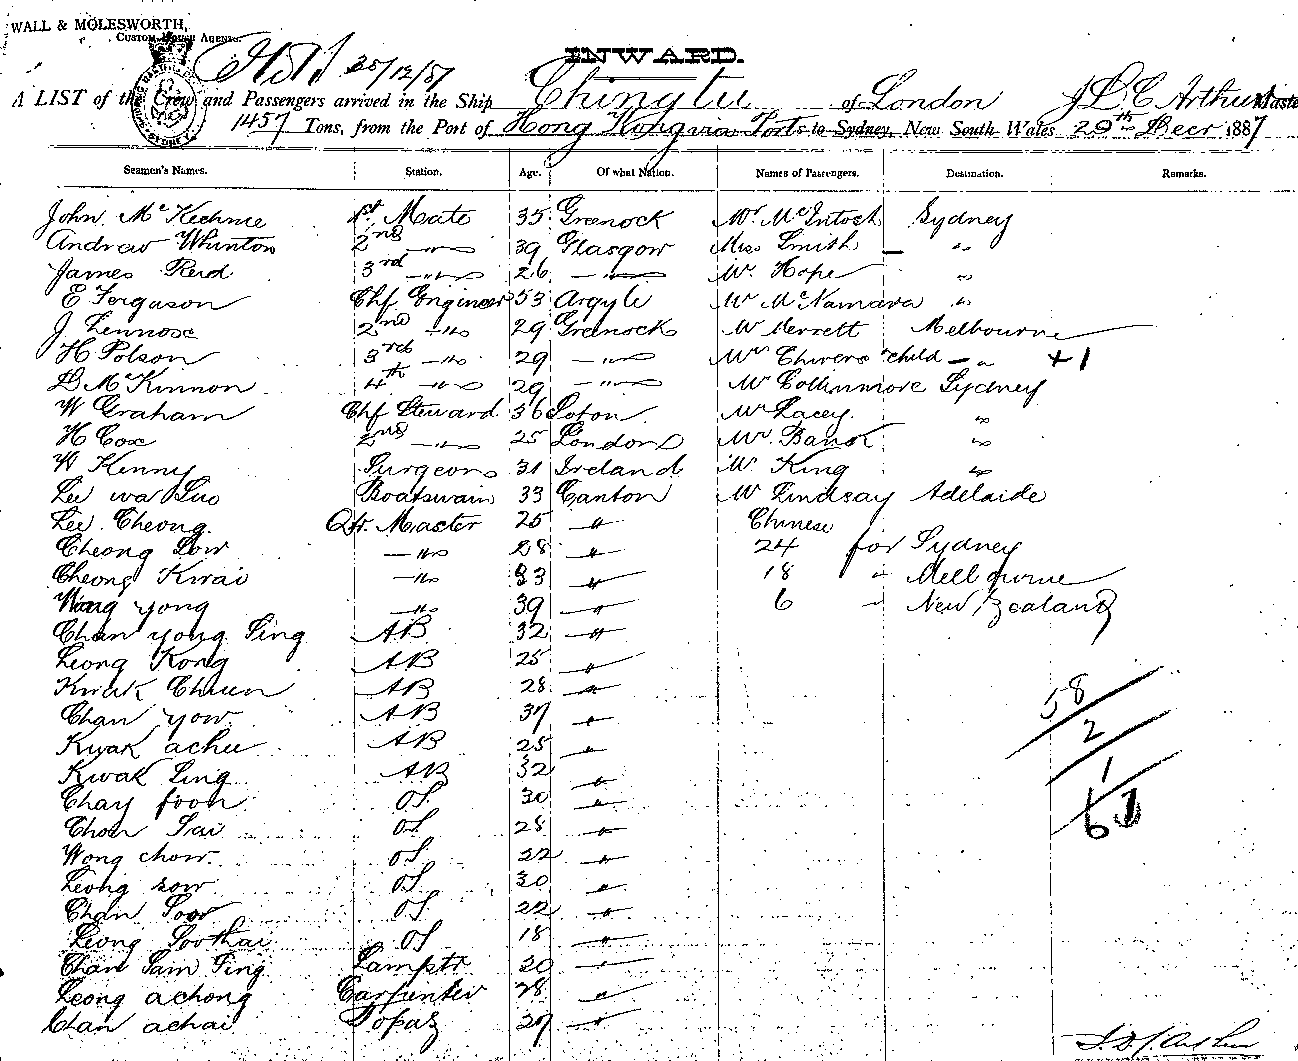 WALL & MOLESWORTH,
CUSTOM HOUSE AGENTS.
INWARD.
A LIST of the Crew and Passengers arrived in the Ship Chingtu of London J D C Arthur Master
1457 Tons, from the Port of Hong Kong via Ports to Sydney, New South Wales 29th Decr 1887
Seamen's Names. Station. Age. Of what Nation. Names of Passengers. Destination. Remarks.
John McKechnie 1st Mate 35 Greenock Mr McIntosh Sydney
Andrew Whinton 2nd " 39 Glasgow Miss Smith "
James Reid 3rd " 26 " Mr Hope "
E Ferguson Chf Engineer 53 Argyle Mr McNamara "
J Lennox 2nd " 29 Greenock Mr Merrett Melbourne
H Polson 3rd " 29 " Mrs Chivers child " +1
D McKinnon 4th " 29 " Mr Collinmore Sydney
W Graham Chf Steward 36 Mr Lacey "
H Cox 2nd " 25 London Mr Bank "
W Kenny Surgeon 31 Ireland Mr King "
Lee wa Suo Boatswain 33 Canton Mr Lindsay Adelaide
Lee Cheong Qtr. Master 25 " Chinese
Cheong Sow " 28 " 24 for Sydney
Cheong Kwai " 33 " 18 " Melbourne
Wong yong " 39 " 6 " New Zealand
Chan yong Sing AB 32 "
Leong Kong AB 25 "
Kwak Chuen AB 28 " 58
Chan yow AB 37 " 2
Kwak achu AB 25 "
Kwak Sing AB 32 " 1
Chay foon OS 30 " 61
Chon Sai OS 28 "
Wong chow OS 22 "
Leong sow OS 30 "
Chan Soo OS 22 "
Leong Soothai OS 18 "
Chan Sam Sing Lamptr 20 "
Leong achong Carpenter 28 "
Chan achai Topaz 27 "